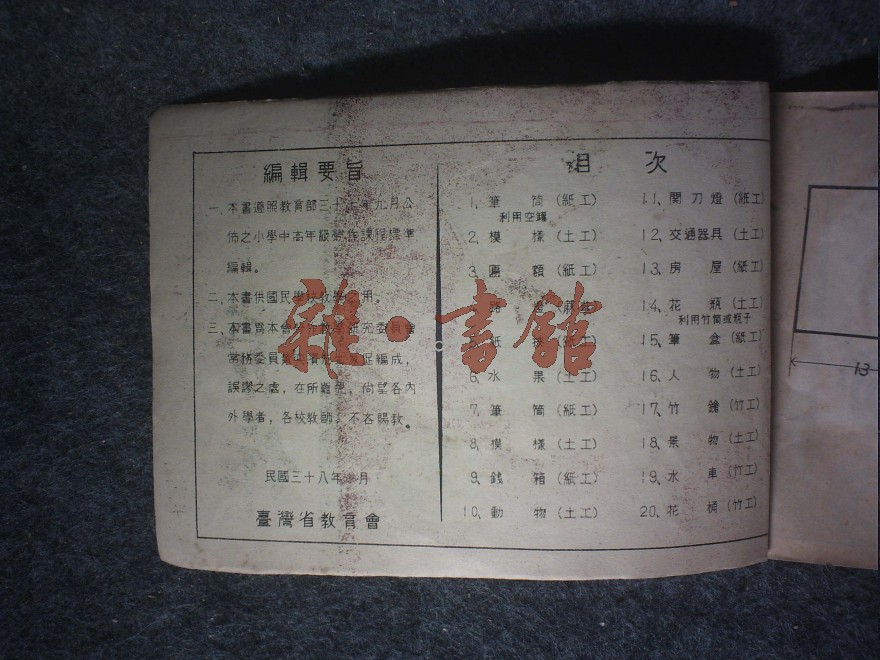 編輯要旨
一、本書遵照教育部三十七年九月公
佈之小學中高年級勞作課程標準
編輯。
二、本書供國民學校教學之用。
三、本書爲本會勞作教學研究委員會
常務委員
誤謬之處，在所難免，尚望各內
外學者，各校教師，不吝賜教。
民國三十八年 月
臺灣省教育會
目 次
1、筆 筒（紙工）
利用空罐
2、模 樣（土工）
3、匾 額（紙工）
路 燈
紙
6、水 果（土工）
7、筆 筒（紙工）
8、模 樣（土工）
9、錢 箱（紙工）
10、動 物（土工）
11、開刀燈（紙工）
12、交通器具（土工）
13、房 屋（紙工）
14、花 瓶（土工）
利用竹筒或瓶子
15、筆 盒（紙工）
16、人 物（土工）
17、竹 鎗（竹工）
18、景 物（土工）
19、水 車（竹工）
20、花 桶（竹工）
13
雜·書館